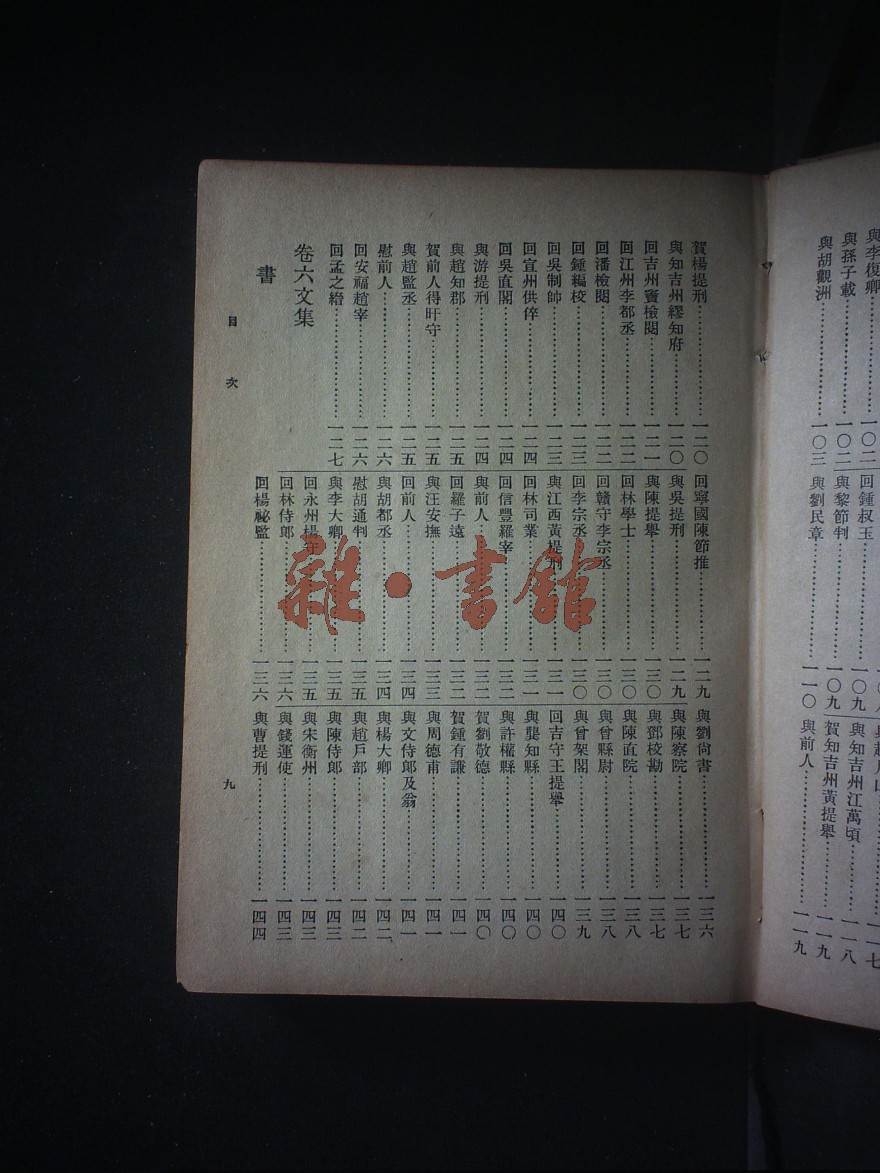 與李復卿……一〇二
與孫子載……一〇二
與胡觀洲……一〇三
回鍾叔玉……一〇九
與黎節判……一〇九
與劉民章……一一〇
一一七
與知吉州江萬頃……一一八
賀知吉州黃提舉……一一九
與前人……一一九
賀楊提刑……一二〇
與知吉州繆知府……一二〇
回吉州竇檢閱……一二一
回江州李都丞……一二二
回潘檢閱……一二二
回鍾編校……一二三
回吳制帥……一二三
回宣州供倅……一二四
回吳直閣……一二四
與游提刑……一二四
與趙知郡……一二五
賀前人得旴守……一二五
與趙監丞……一二五
慰前人……一二六
回安福趙宰……一二六
回孟之縉……一二七
卷六文集
書
回寧國陳節推……一二九
與吳提刑……一二九
與陳提舉……一三〇
回林學士……一三〇
回贛守李宗丞……一三〇
回李宗丞……一三〇
與江西黃提刑……一三一
回林司業……一三一
回信豐羅宰……一三二
與前人……一三二
回羅子遠……一三二
與汪安撫……一三三
回前人……一三四
與胡都丞……一三四
慰胡通判……一三五
與李大卿……一三五
回永州楊守……一三五
回林侍郎……一三六
回楊祕監……一三六
與劉尙書……一三六
與陳察院……一三七
與鄧校勘……一三七
與陳直院……一三八
與曾縣尉……一三八
與曾架閣……一三九
回吉守王提舉……一四〇
與龔知縣……一四〇
與許權縣……一四〇
賀劉敬德……一四〇
賀鍾有謙……一四一
與周德甫……一四一
與文侍郎及翁……一四一
與楊大卿……一四二
與趙戶部……一四二
與陳侍郎……一四三
與宋衡州……一四三
與錢運使……一四三
與曹提刑……一四四
目次
九
雜·書館